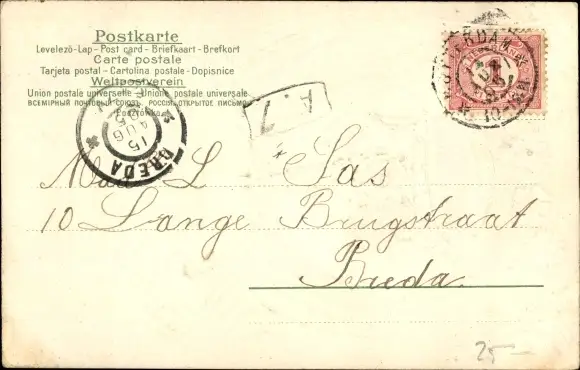 Postkarte
Levelező-Lap - Post card - Briefkaart - Brefkort
Carte postale
Tarjeta postal - Cartolina postale - Dopisnice
Weltpostverein
Union postale universelle - Unione postale universale
ВСЕМІРНЫЙ ПОЧТОВЫЙ СОЮЗЪ. РОССІЯ. ОТКРЫТОЕ ПИСЬМО
15 AUG
BREDA
A.7
L Sas
10 Lange Brugstraat
Breda.
25—